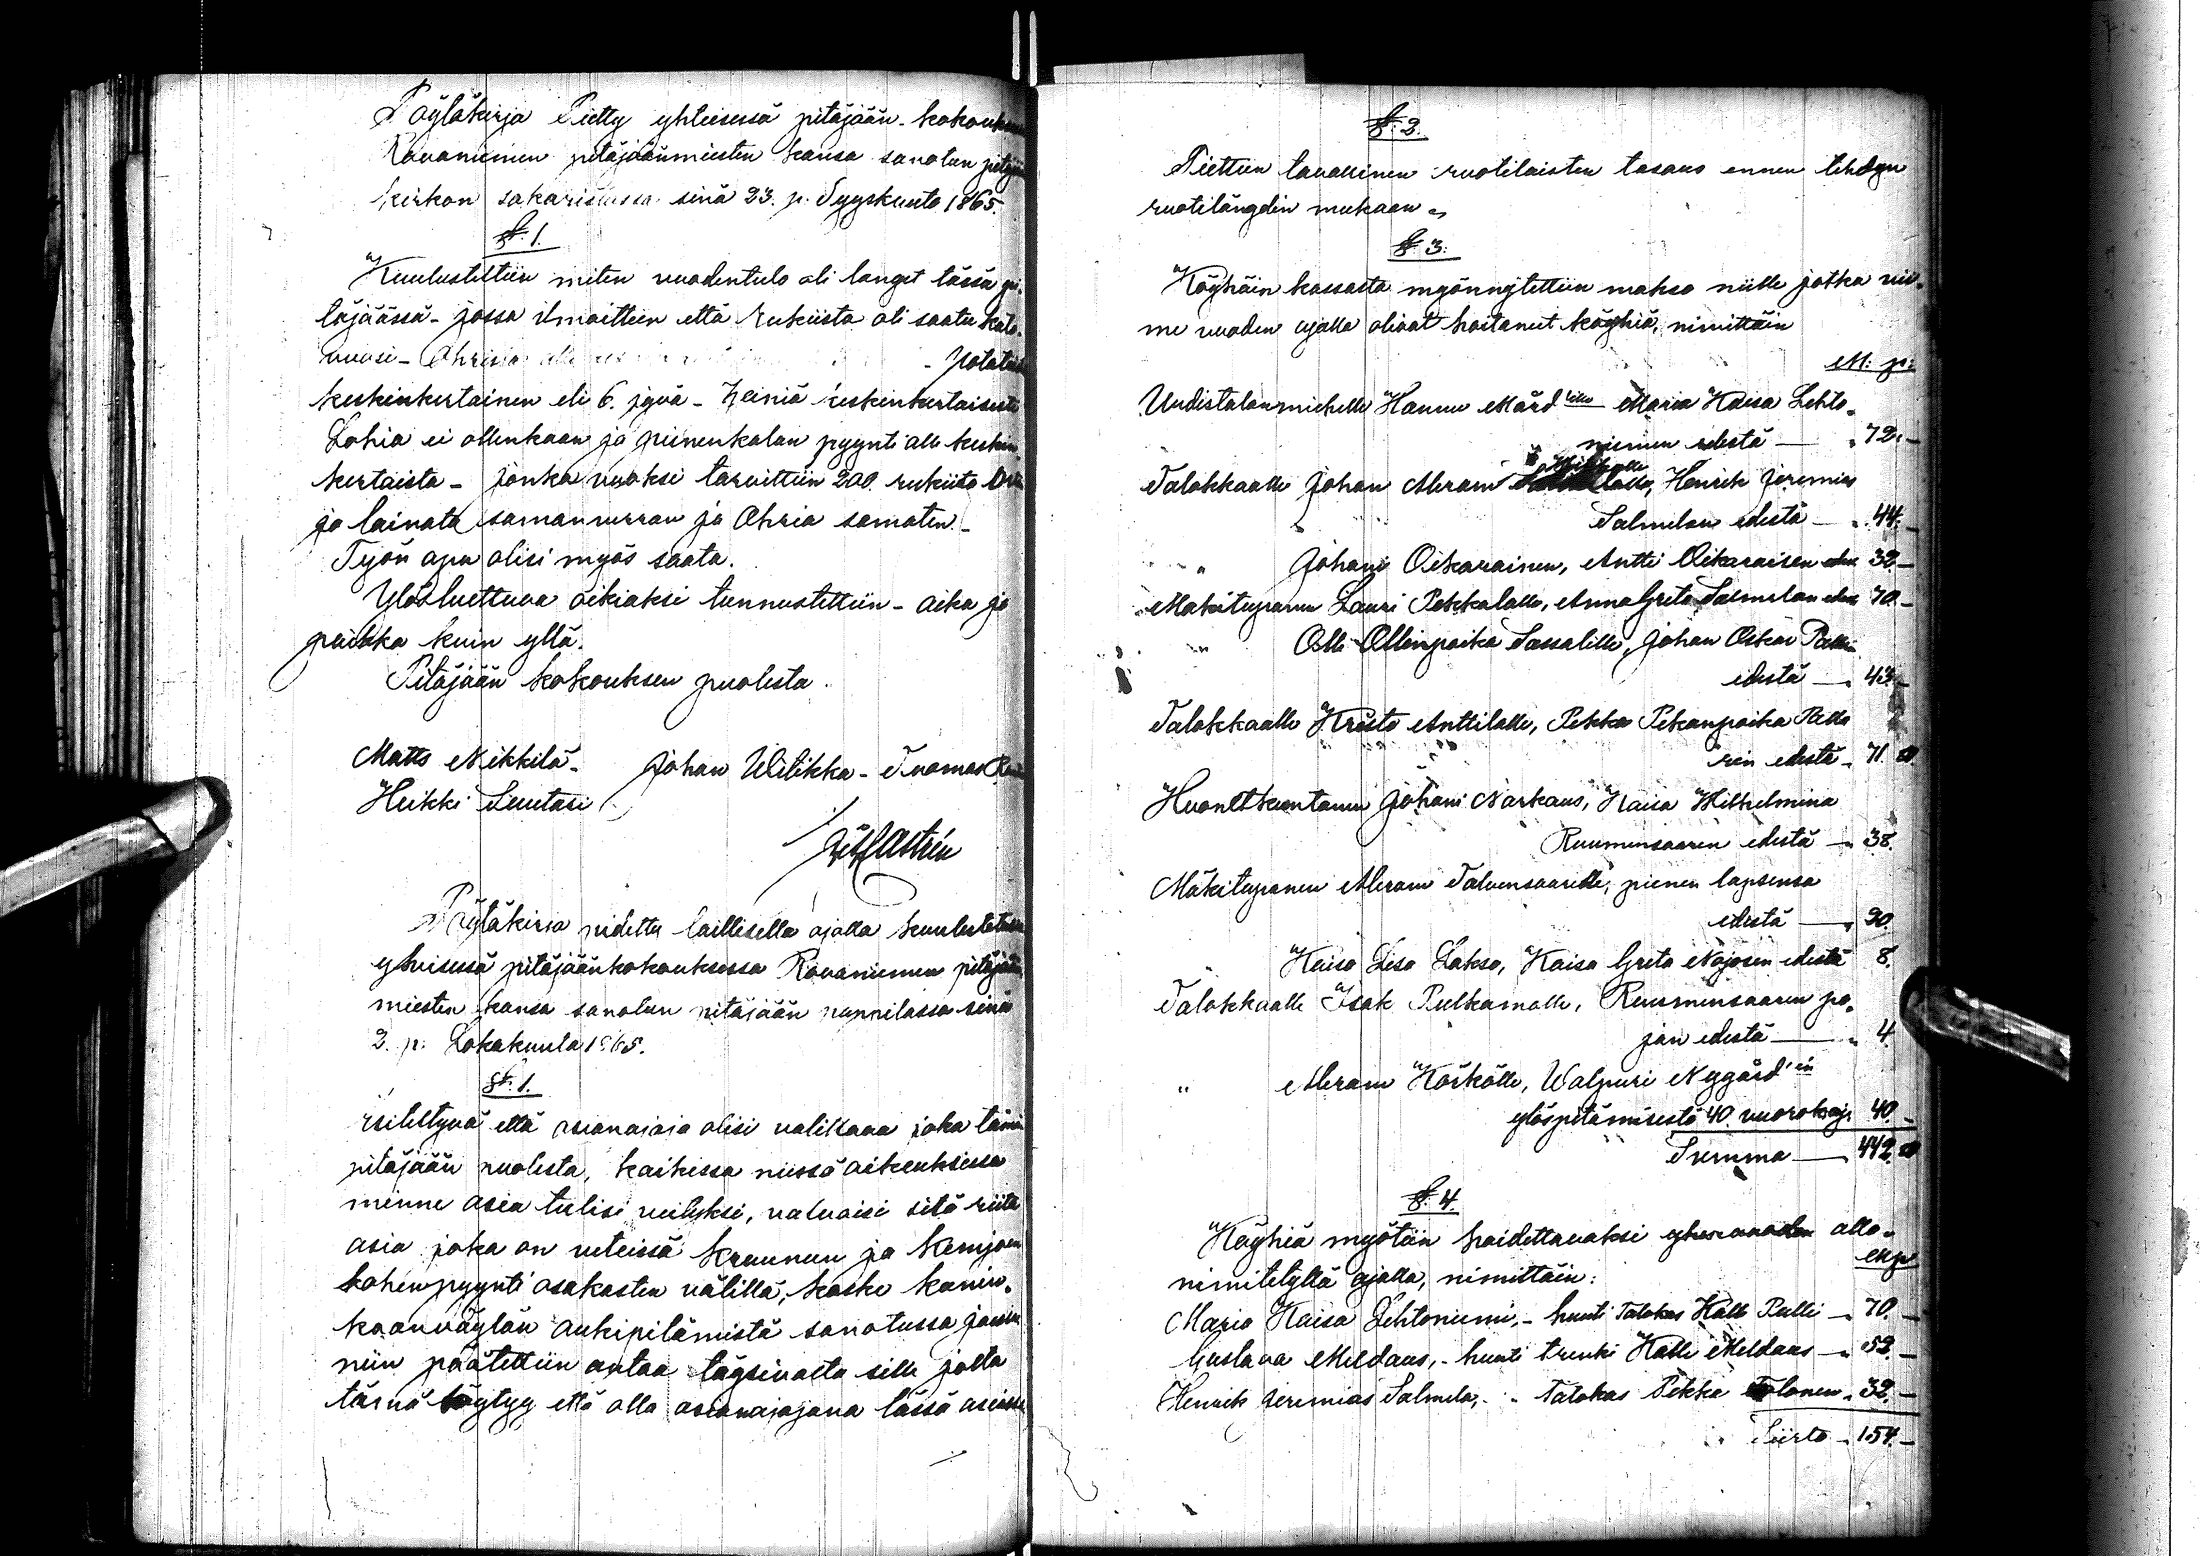 Pöytäkirja Pietty yhteisessä pitäjään-kokouk
Rovaniemen pitäjäänmiesten kansa sanotun pitäjä
kirkon sakaristassa sinä 23. p. Syyskuuta 1865.
§. 1.
Kuulusteltiin miten vuodentulo oli langet tässä pi-
täjäässä - jossa ilmoittiin että rukiista oli saatu kato-
vuosi - Ohrista - Potatu
keskinkertainen eli 6. jyvä - heiniä keskinkertaisesti
Lohia ei ollenkaan ja pienenkalan pyynti alle keskin
kertaista - jonka vuoksi tarvittiin 200. rukiita
ja lainata samanverran ja Ohria samaten. -
Työn apu olisi myös saata.
Ylösluettuva oikiaksi tunnustettiin - aika ja
paikka kuin yllä.
Pitäjään kokouksen puolesta.
Matts Nikkilä - Johan Wilikka - Tuomas
Heikki Luutasi
Pöytäkirja pidetty laillisella ajalla kuulutetussa
yhtisessä pitäjäänkokouksessa Rovaniemen pitäjään
miesten kansa sanotun pitäjään pappilassa sinä
2. p. Lokakuuta 1865.
§. 1.
että asianajaja olisi valittava joka tämän
pitäjään puolesta, kaikissa niissä oikeuksissa
minne asia tulisi, valvaisi sitä riita
asia joka on riiteissä kruunun ja Kemijoen
lohenpyynti osakasten välillä, koska kunin-
kaanväylän aukipitämistä sanotussa joessa
niin päätettiin antaa täysivalta sille jolta
tärnä täytyy että olla asianajajana tässä asiassa
§. 2.
Piettiin tavallinen ruotilaisten tasaus ennen tehdyn
ruotilängdin mukaan.
§ 3.
Köyhäin kassasta myönnytettiin makso niille jotka vii-
me vuoden ajalla olivat hoitanut köyhiä, nimittäin
M: p:
Uudistalonmiehelle Hannu Mård'ille Maria Kaisa Lehto-
niemen edestä — „ 72. –
Talokkaalle Johan Abram Heikkalle, Henrik Jeremias
Salmelan edestä — „ 44. –
„ Johani Oikarainen, Antti Oikaraisen edes 32 –
Mäkitupanen Lauri Pekkalalle, Anna Greta Salmelan edes 70. –
„ Olli Ollinpoika Sassalille, Johan Oskar Palli
edestä — „ 43. –
Talokkaalle Kristo Anttilalle, Pekka Pekanpoika Palla
rin edestä „ 71.
Huonetkuntanen Johani Narkaus, Kaisa Wilhelmina
Ruuminsaaren edestä — „ 38.
Mäkitupanen Abram Talvensaarille, pienen lapsensa
edestä — „ 20.
Kaisa Lisa Lakso, Kaisa Greta Nöjösen edestä 8.
Talokkaalle Isak Pulkamalle, Ruuminsaaren po-
jan edestä — „ 4.
„ Abram Körkölle, Walpuri Nygård'in
ylöspitämisestä 40. vuorokaj. 40. –
Summa — 442.
§. 4.
Köyhiä myötiin hoidettavaksi yhen vuoden alla-
nimitetyltä ajalla, nimittäin: M p
Maria Kaisa Lehtoniemi, - huuti Talokas Kalle Pulli — „ 70. –
Gustava Meldaus, - huuti trenki Kalle Meldaus — „ 52. –
Henrik Jeremias Salmela, - „ Talokas Pekka Tolonen „ 32. –
Siirto „ 154. –